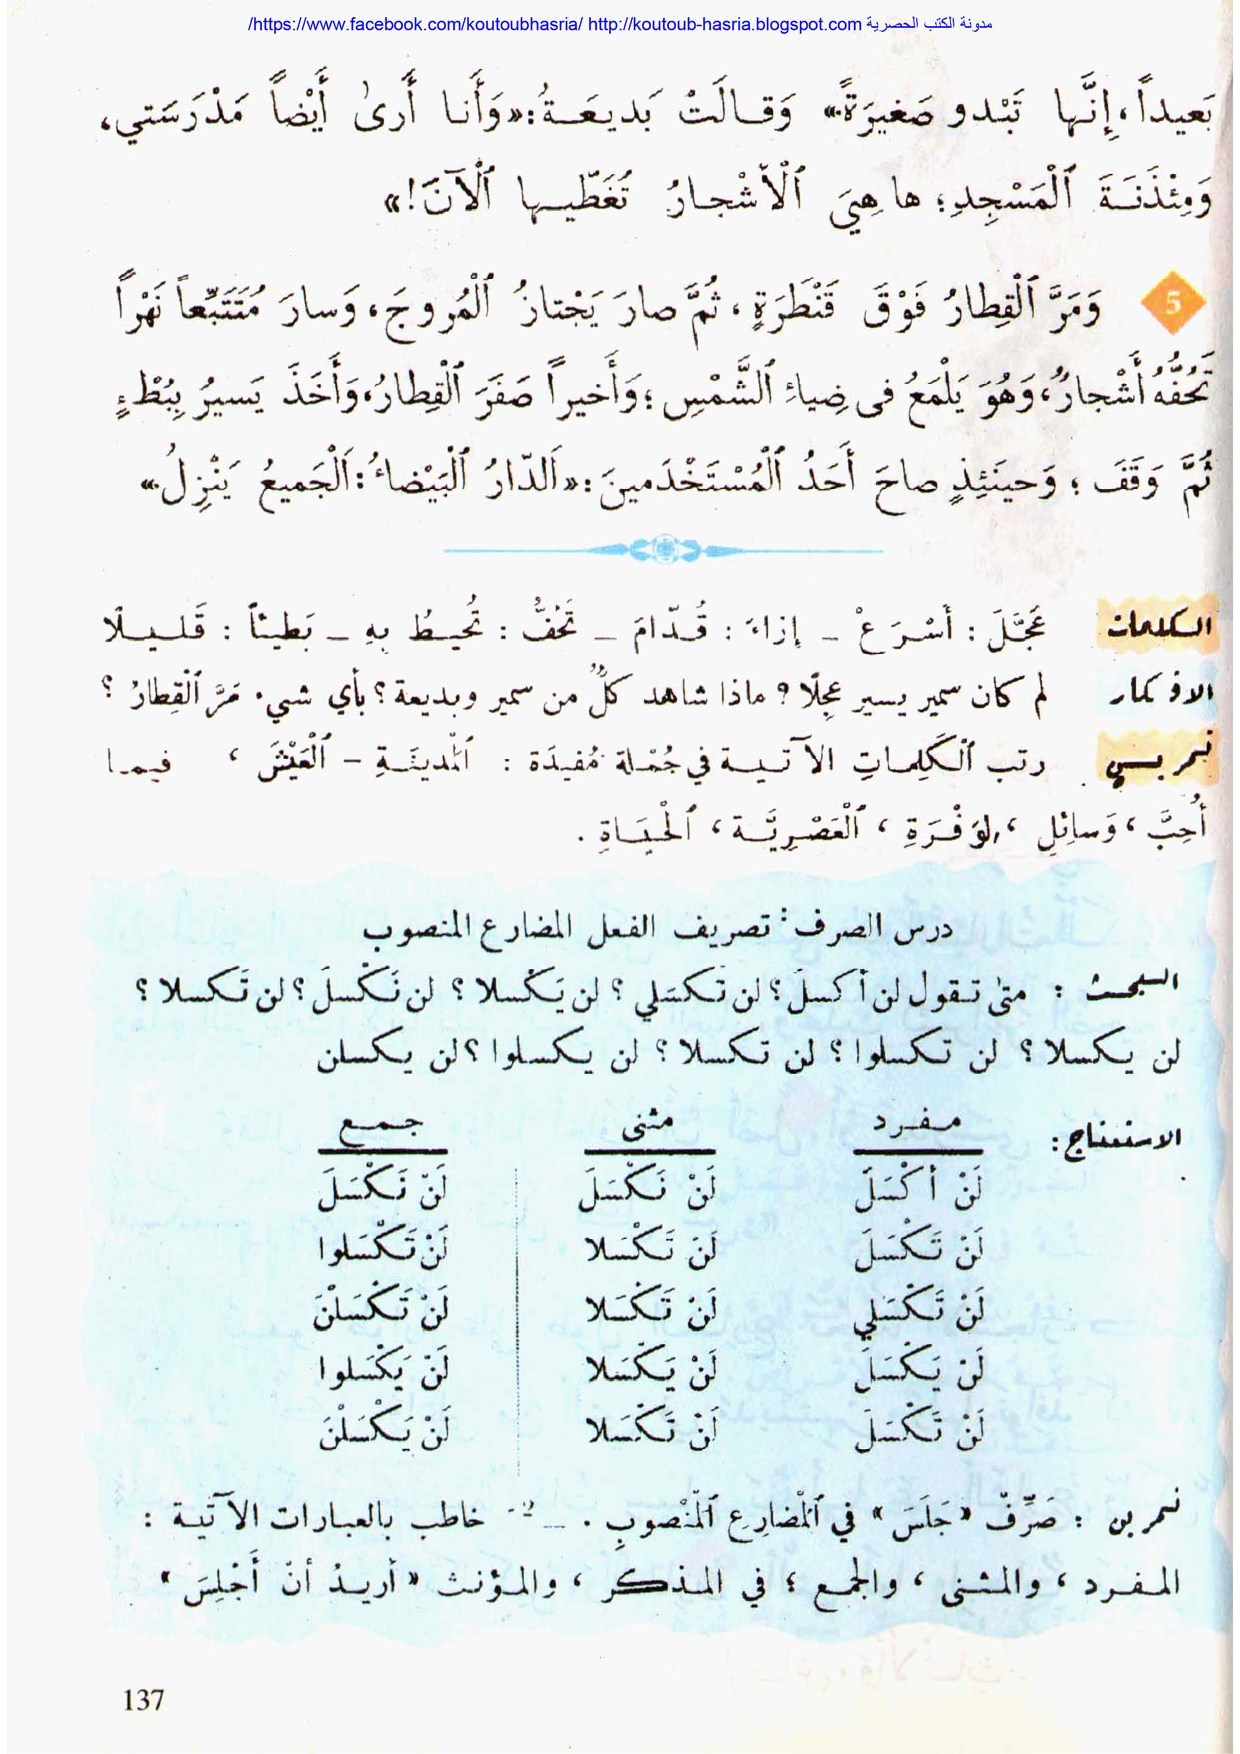 https://www.facebook.com/koutoubhasria/ http://koutoub-hasria.blogspot.com مدونة الكتب الحصرية/
بَعيداً، إِنَّها تَبْدو صَغيرَةً.» وَقـالَتْ بَديعَـةُ: «وَأَنـا أَرىٰ أَيْضاً مَدْرَسَتي،
وَمِئْذَنَـةَ ٱلْمَسْجِدِ؛ ها هِيَ ٱلْأَشْجارُ تُغَطّيـها ٱلْآنَ!»
5 وَمَرَّ ٱلْقِطارُ فَوْقَ قَنْطَرَةٍ، ثُمَّ صارَ يَجْتازُ ٱلْمُروجَ، وَسارَ مُتَتَبِّعاً نَهْراً
تَحُفُّهُ أَشْجارٌ، وَهُوَ يَلْمَعُ فى ضِياءِ ٱلشَّمْسِ؛ وَأَخيراً صَفَرَ ٱلْقِطارُ، وَأَخَذَ يَسيرُ بِبُطْءٍ
ثُمَّ وَقَفَ؛ وَحينَئِذٍ صاحَ أَحَدُ ٱلْمُسْتَخْدَمينَ: «اَلدّارُ ٱلْبَيْضاءُ: اَلْجَميعُ يَنْزِلُ.»
الكلمات عَجَّلَ: أَسْرَعَ - إزاءَ: قُدّامَ - تَحُفُّ: تُحيطُ بِهِ - بَطيئاً: قَليلًا
الافكار لم كان سمير يسير عجِلًا؟ ماذا شاهد كلٌّ من سمير وبديعة؟ بأي شيء مَرَّ ٱلْقِطارُ؟
تمرين رتب ٱلْكَلِماتِ الآتـيـة في جُمْلة مُفيدَة: ٱلْمدينَـةِ - ٱلْعَيْشَ، فيمـا
أُحِبَّ، وَسائِلِ، لِوَفْرَةِ، ٱلْعَصْرِيَّـة، ٱلْحَيَاةِ.
درس الصرف: تصريف الفعل المضارع المنصوب
البحث: متى تـقول لن أكسلَ؟ لن تكسَلي؟ لن يَكْسلا؟ لن نَكْسلَ؟ لن تَكسلا؟
لن يكسلا؟ لن تكسلوا؟ لن تكسلا؟ لن يكسلوا؟ لن يكسلن
الاستنتاج: مـفـرد مثنى جـمـع
لَنْ أَكْسَلَ لَنْ نَكْسَلَ لَنْ نَكْسَلَ
لَنْ تَكْسَلَ لَنْ تَكْسَلا لَنْ تَكْسَلوا
لَنْ تَكْسَلي لَنْ تَكْسَلا لَنْ تَكْسَلْنَ
لَنْ يَكْسَلَ لَنْ يَكْسَلا لَنْ يَكْسَلوا
لَنْ تَكْسَلَ لَنْ تَكْسَلا لَنْ يَكْسَلْنَ
تمرين: صَرِّفْ «جَلَسَ» في ٱلْمُضارِعِ ٱلْمَنْصوبِ. - 2 - خاطب بالعبارات الآتيـة:
المـفـرد، والمـثـنى، والجمع؛ في المـذكـر، والمـؤنـث «أريـدُ أنْ أَجْلِسَ»
137